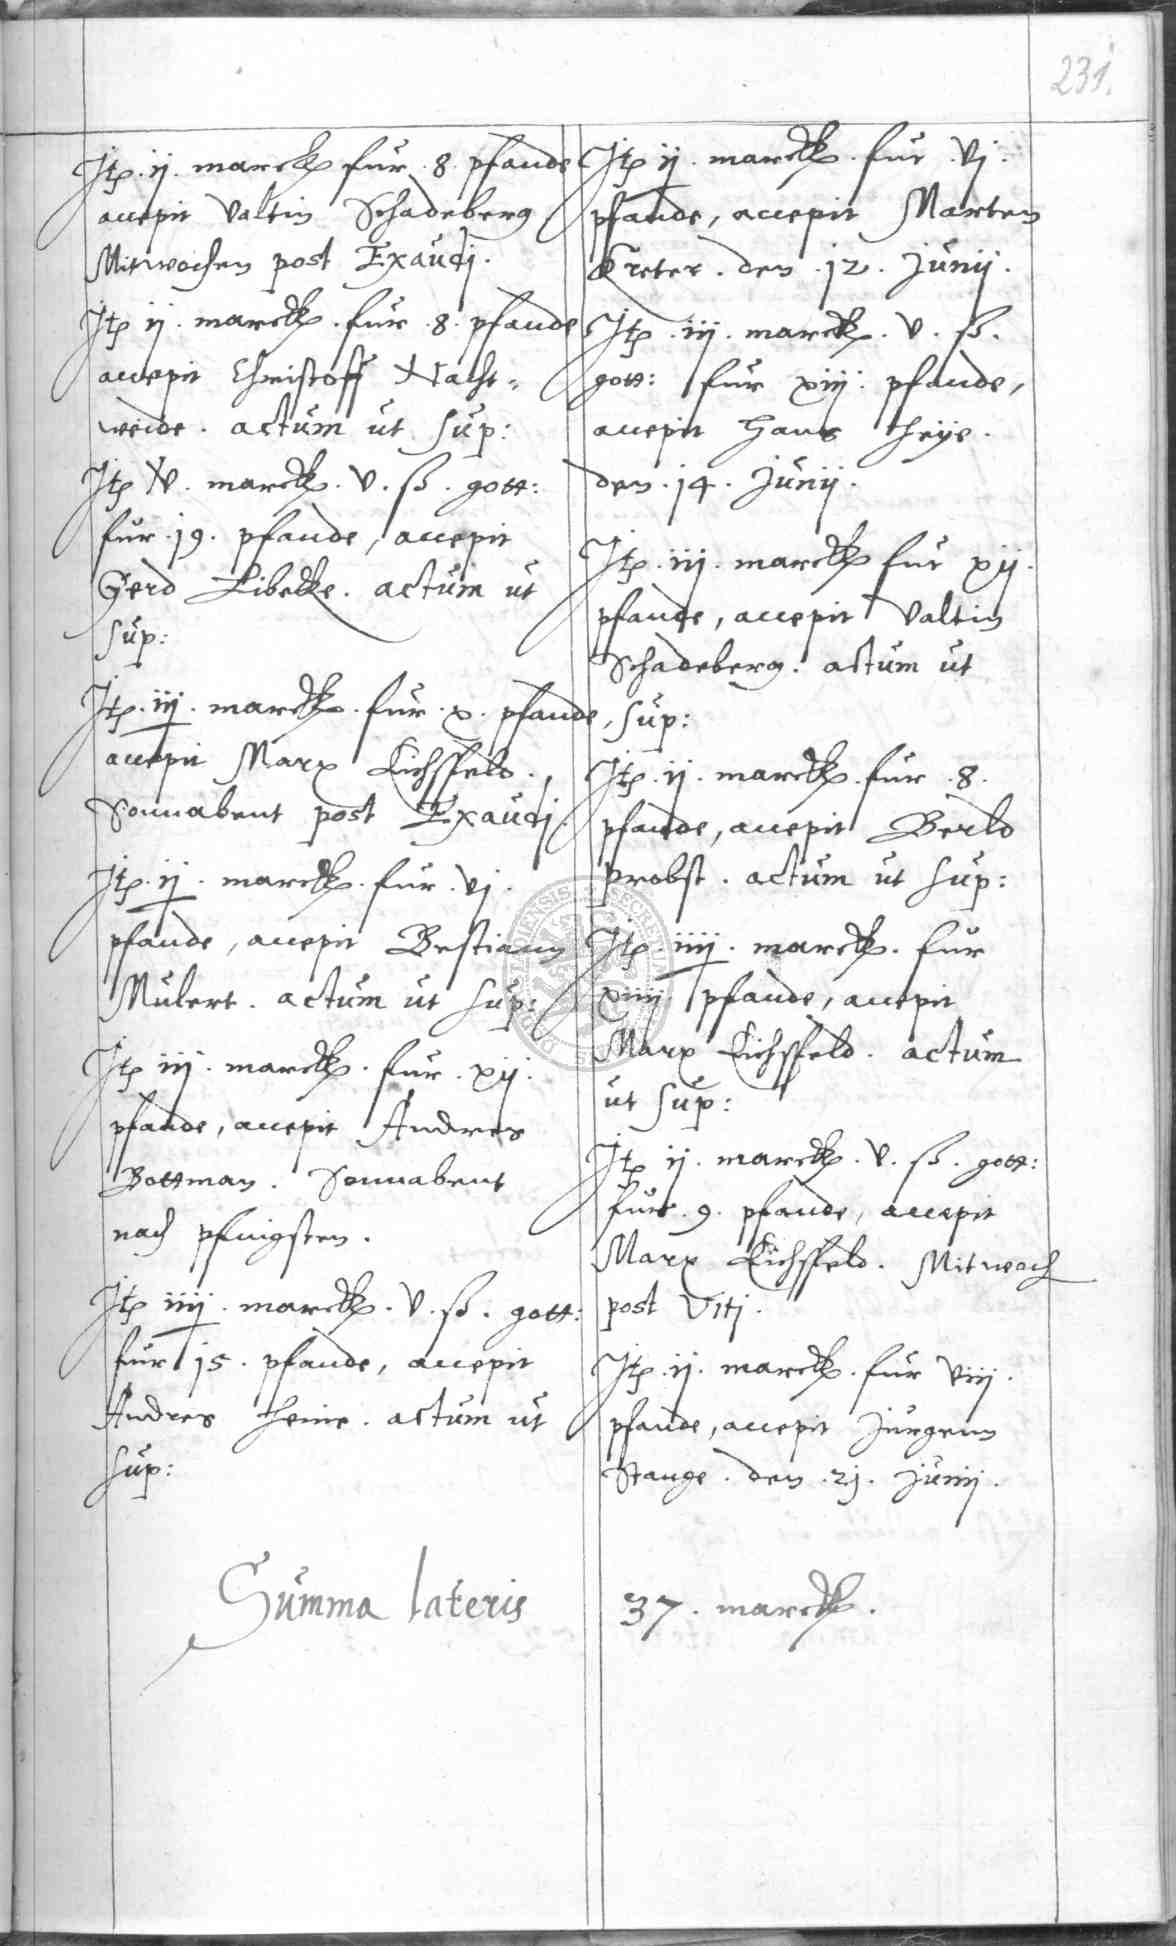 231.
Itē. ij. marck fur. 8. pfande
accepit Valtin Schadeberg
Mitwochen post Exaudj.
Itē ij. marck. fur. 8. pfande
accepit Christoff Nacht-
weide. actum ut sup:
Itē V. marck. V. ß. gott:
fur. 19. pfande, accepit
Gerd Libecke. actum ut
sup:
Itē. iij. marck. fur. x. pfande,
accepit Marx Eichsfeld.
Sonnabent post Exaudj.
Itē. ij. marck. fur. vj.
pfande, accepit Bestiann
Mulert. actum ut sup:
Itē iij. marck. fur. xij.
pfande, accepit Andres
Bottman. Sonnabent
nach pfingsten.
Itē iiij. marck. V. ß. gott:
fur 15. pfande, accepit
Andres Heine. actum ut
sup:
Itē ij. marck. fur. Vj.
pfande, accepit Marten
Kreter. den. 12. Junij.
Itē. iij. marck. V. ß.
gott: fur xiij. pfande,
accepit Hans Heye.
den. 14. Junij.
Itē. iij. marck fur xij.
pfande, accepit Valtin
Schadeberg. actum ut
sup:
Itē. ij. marck. fur. 8.
pfande, accepit Berld
Probst. actum ut sup:
Itē. iiij. marck. fur
xiiij. pfande, accepit
Marx Eichsfeld. actum
ut sup:
Itē ij. marck. V. ß. gott:
fur. 9. pfande, accepit
Marx Eichsfeld. Mitwoch
post Vitj.
Itē. ij. marck. fur Viij.
pfande, accepit Jurgenn
Stange. den. 21. Junij.
Summa lateris 37. marck.